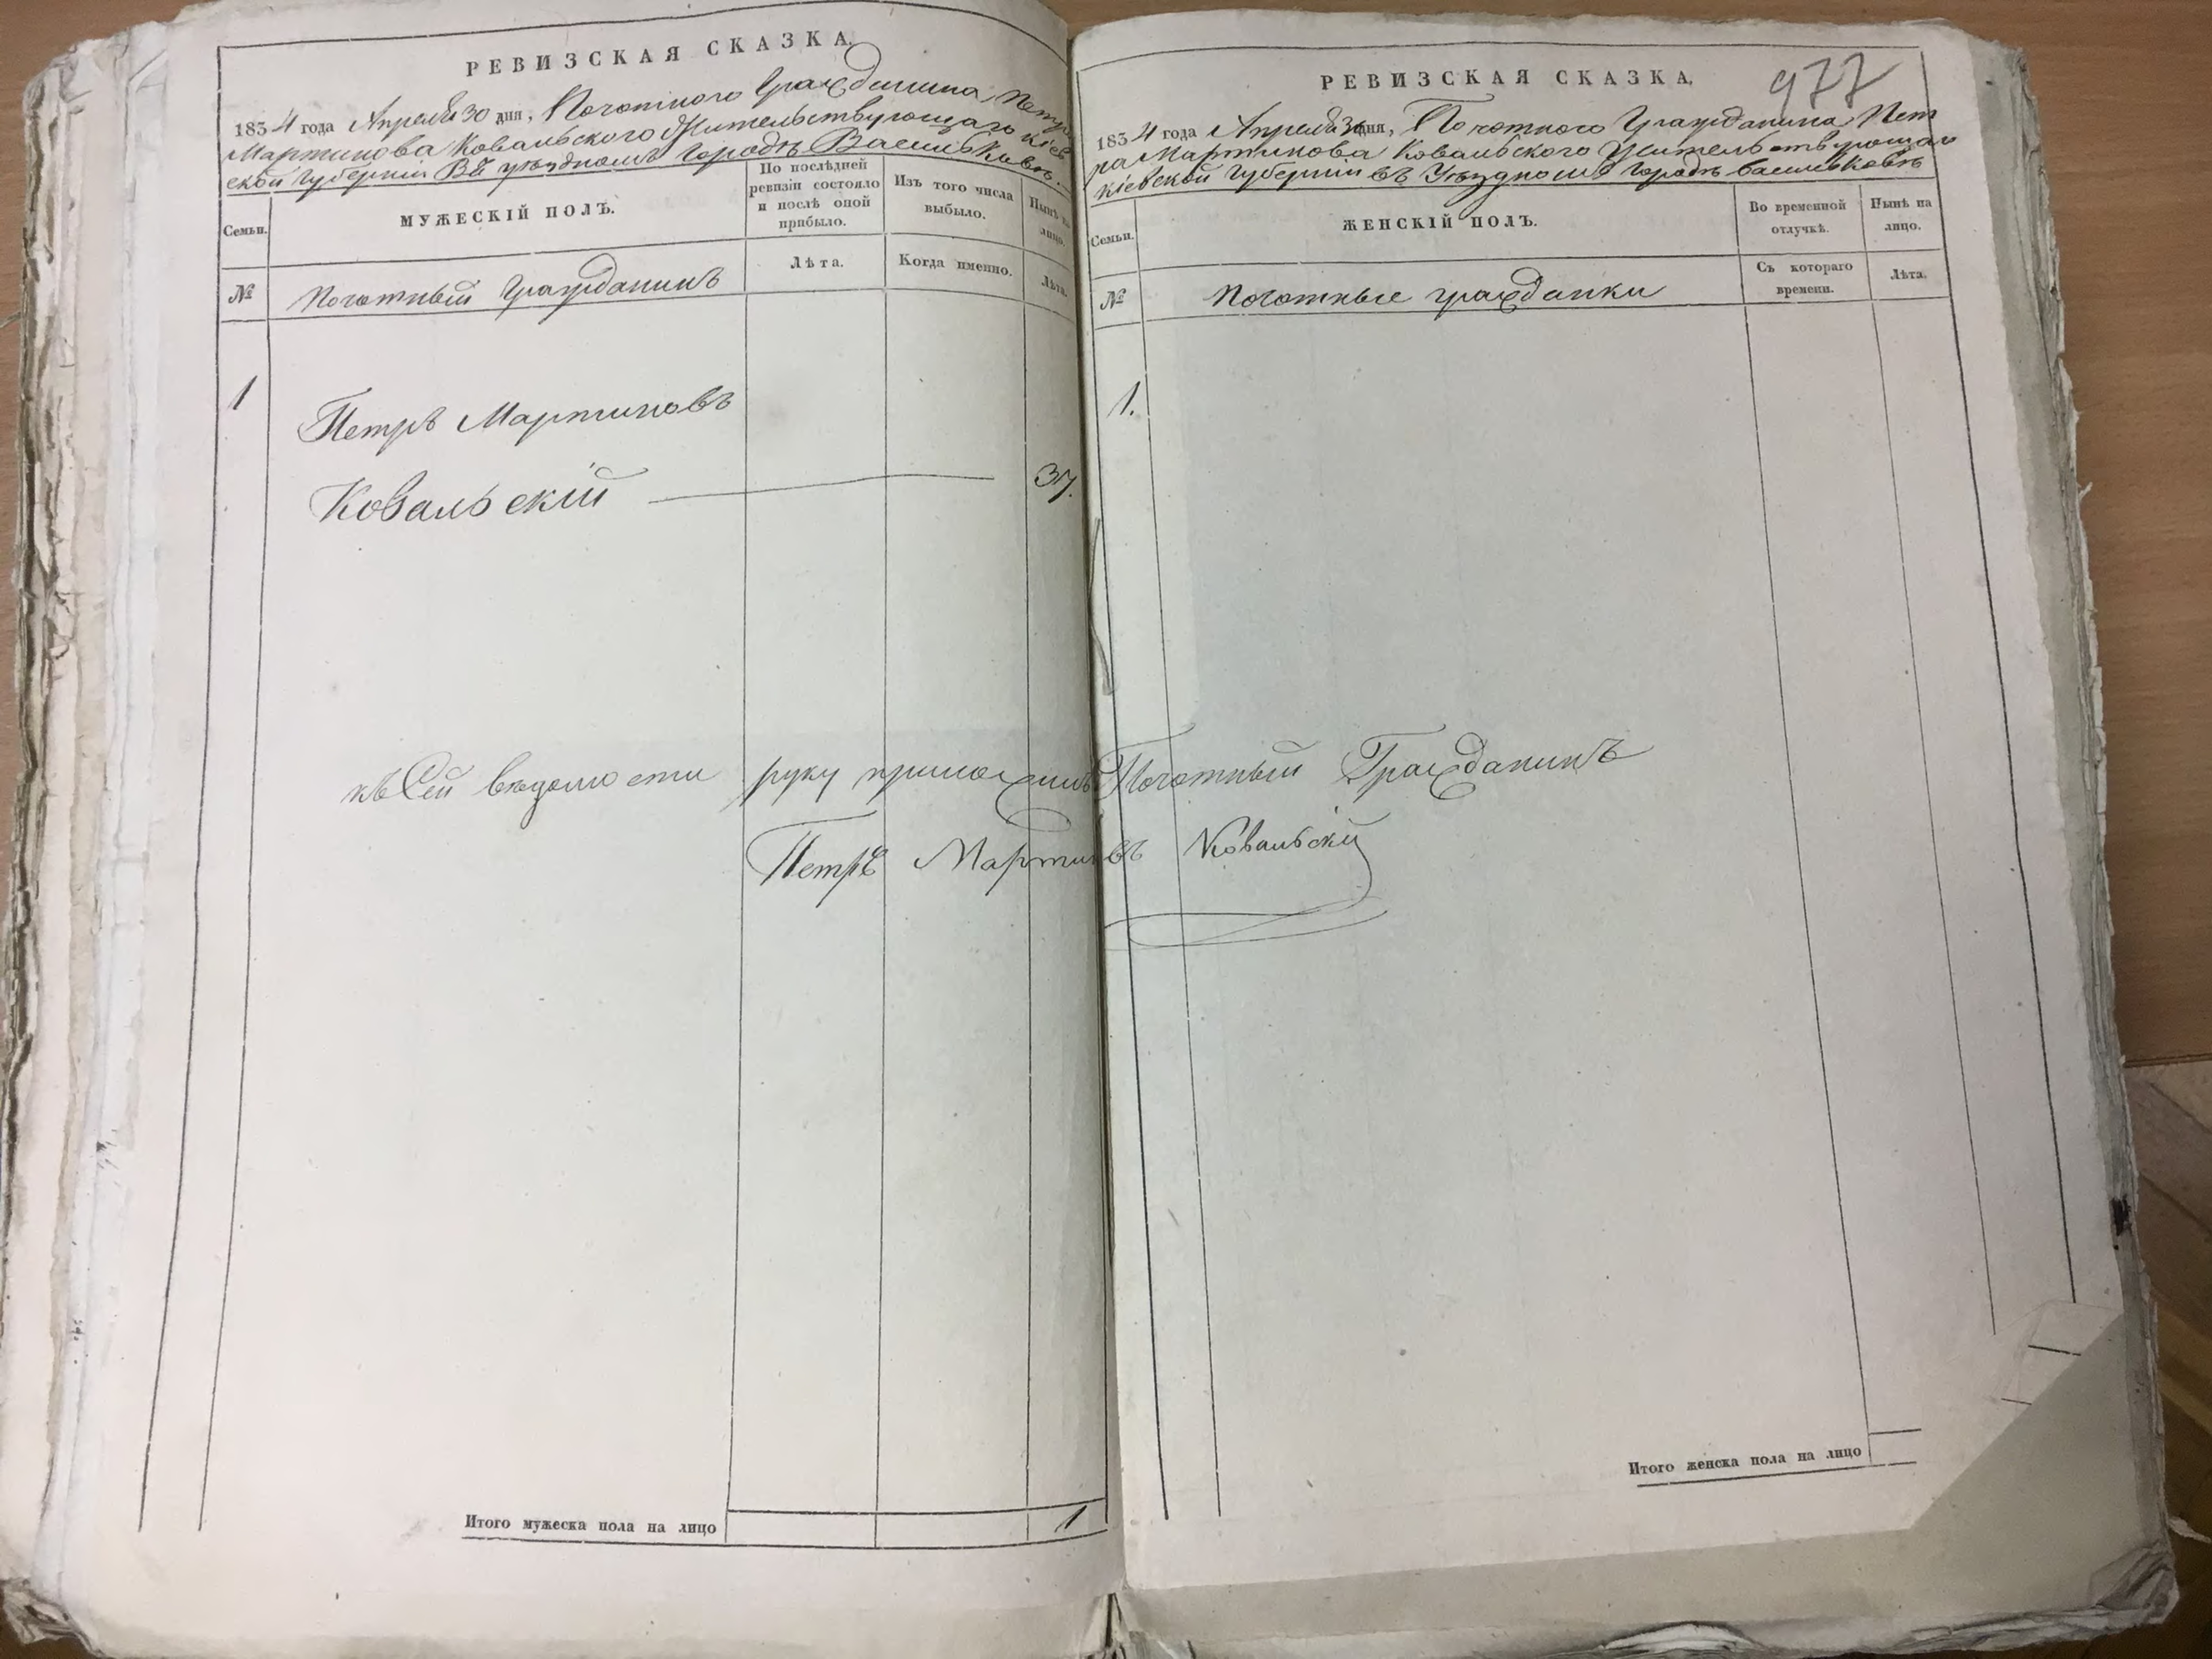 РЕВИЗСКАЯ СКАЗКА.
1834 года Апреля 30 дня, Почотного Гражданина Петра
Мартинова Ковальского Жительствующаго Кіев
ской Губерніи Въ уѣздномъ Городѣ Васильковѣ.
Семьи.
МУЖЕСКІЙ ПОЛЪ.
По послѣдней
ревизіи состояло
и послѣ оной
прибыло.
Изъ того числа
выбыло.
Нынѣ на
лицо.
№
Почотный Гражданинъ
Лѣта.
Когда именно.
Лѣта.
1
Петръ Мартиновъ
Ковальскій
37.
къ Сей вѣдомости руку приложилъ Почотный Гражданинъ
Петръ Мартиновъ Ковальскій
Итого мужеска пола на лицо
1
977
РЕВИЗСКАЯ СКАЗКА,
1834 года Апреля 30 дня, Почотного Гражданина Пет
ра Мартинова Ковальского Жительствующаго
Кіевской Губерніи въ Уѣздномъ Городѣ Васильковѣ
Семьи.
ЖЕНСКІЙ ПОЛЪ.
Во временной
отлучкѣ.
Нынѣ на
лицо.
№
Почотные гражданки
Съ котораго
времени.
Лѣта.
1.
Итого женска пола на лицо